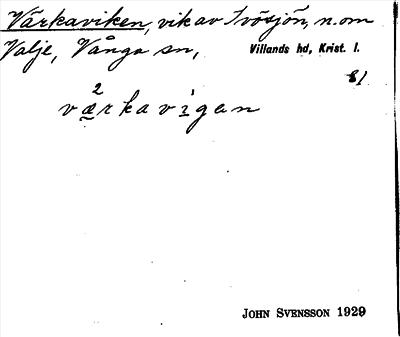 Värkaviken, vik av Ivösjön, n. om
Valje, Vånga sn, Villands hd, Krist. l.
81
2
værkavigan
JOHN SVENSSON 1929